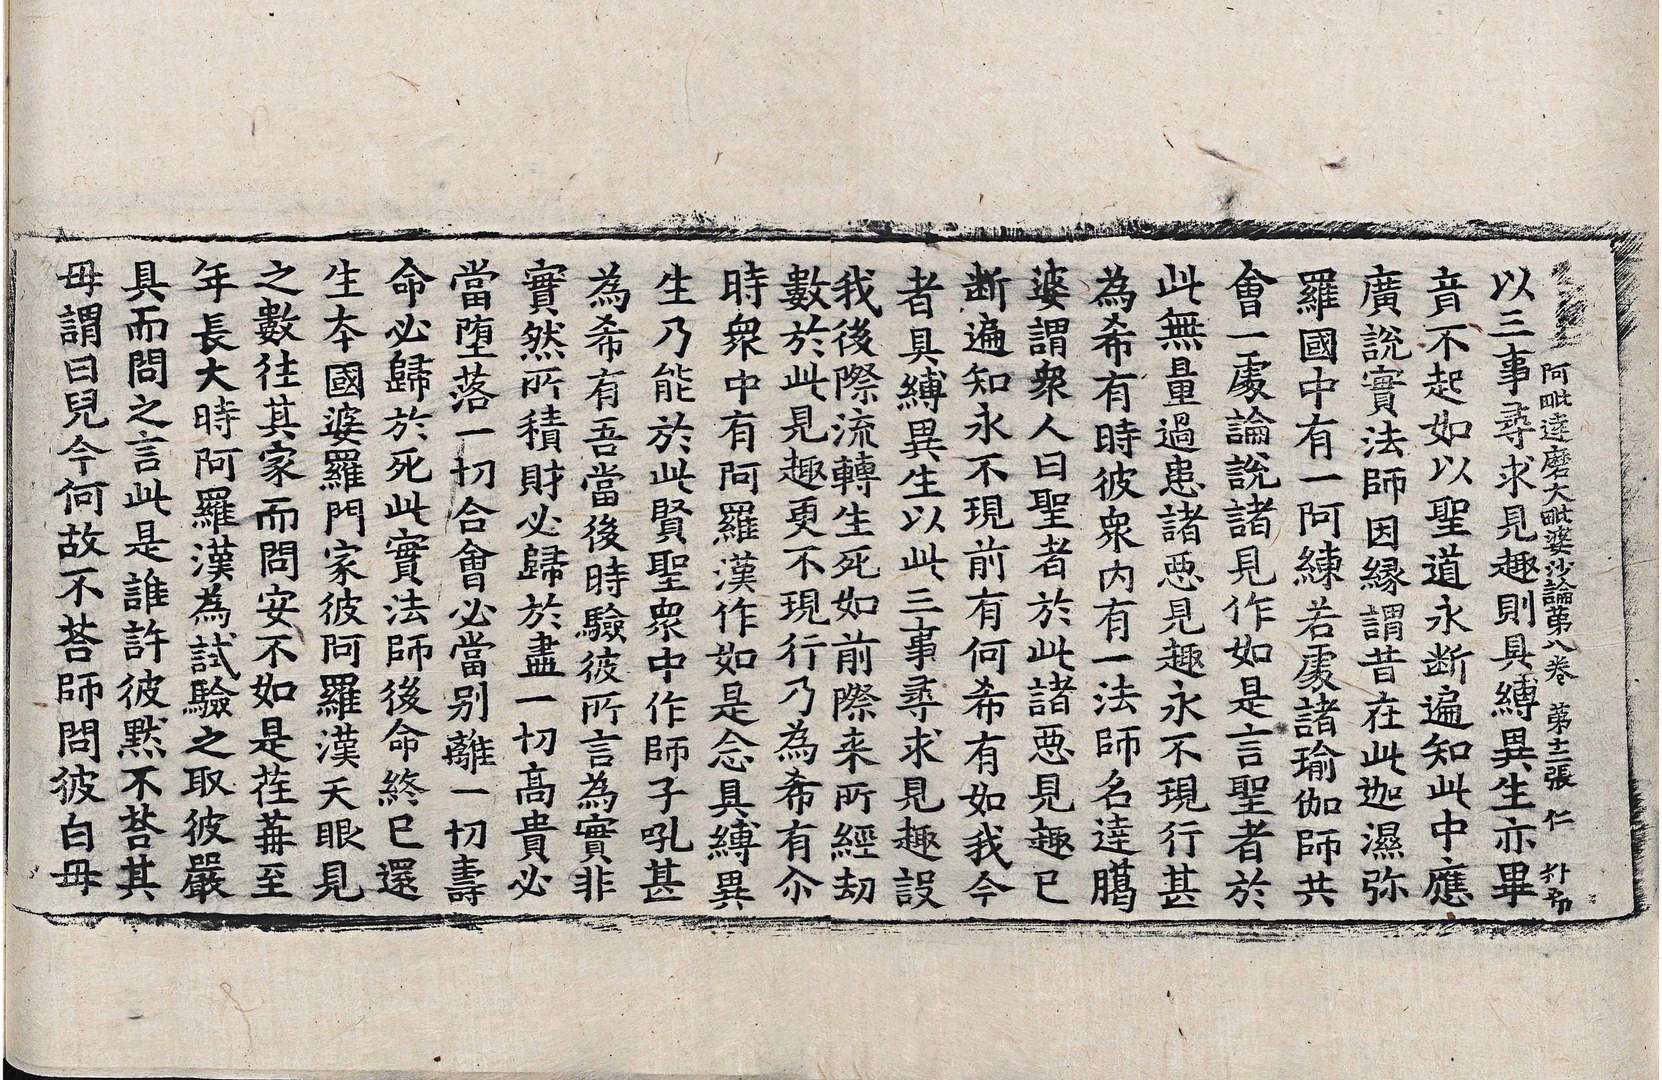 阿毗達磨大毗婆沙論第八卷 第十二張 仁
以三事尋求見趣則具縛異生亦畢
音不起如以聖道永断遍知此中應
廣說實法師因緣謂昔在此迦濕弥
羅國中有一阿練若處諸瑜伽師共
會一處論說諸見作如是言聖者於
此無量過患諸惡見趣永不現行甚
為希有時彼衆内有一法師名達臈
婆謂衆人曰聖者於此諸惡見趣已
断遍知永不現前有何希有如我今
者具縛異生以此三事尋求見趣設
我後際流轉生死如前際来所經劫
數於此見趣更不現行乃為希有尒
時衆中有阿羅漢作如是念具縛異
生乃能於此賢聖衆中作師子吼甚
為希有吾當後時驗彼所言為實非
實然所積財必歸於盡一切高貴必
當墮落一切合會必當别離一切壽
命必歸於死此實法師後命終已還
生本國婆羅門家彼阿羅漢天眼見
之數往其家而問安不如是荏苒至
年長大時阿羅漢為試驗之取彼嚴
具而問之言此是誰許彼默不荅其
母謂曰兒今何故不荅師問彼白母